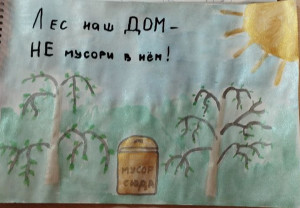 Лес наш ДОМ –
НЕ мусори в нём!
МУСОР
СЮДА